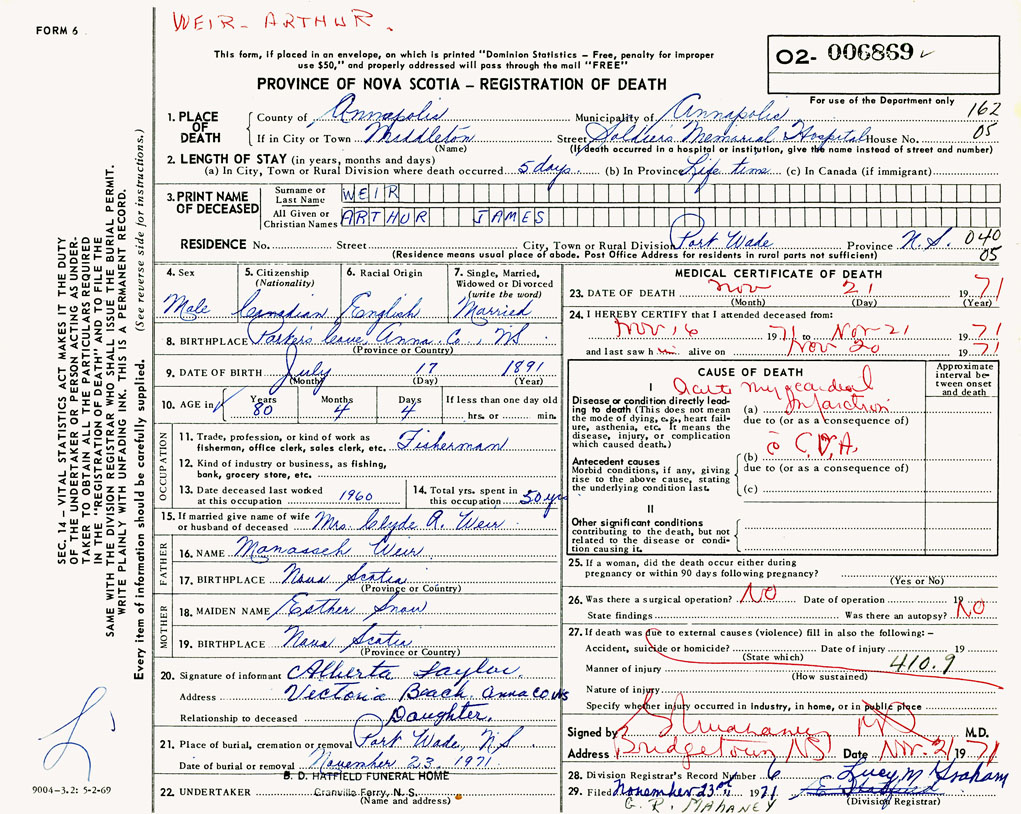 FORM 6
WEIR - ARTHUR.
This form, if placed in an envelope, on which is printed "Dominion Statistics – Free, penalty for improper
use $50," and properly addressed will pass through the mail "FREE"
PROVINCE OF NOVA SCOTIA – REGISTRATION OF DEATH
02- 006869
For use of the Department only
162
05
1. PLACE OF DEATH
County of Annapolis Municipality of Annapolis
If in City or Town Middleton Street Soldiers Memorial Hospital House No.
(Name) (If death occurred in a hospital or institution, give the name instead of street and number)
2. LENGTH OF STAY (in years, months and days)
(a) In City, Town or Rural Division where death occurred 5 days (b) In Province Life time (c) In Canada (if immigrant)
3. PRINT NAME OF DECEASED
Surname or Last Name WEIR
All Given or Christian Names ARTHUR JAMES
RESIDENCE No. Street City, Town or Rural Division Port Wade Province N.S. 040
05
(Residence means usual place of abode. Post Office Address for residents in rural parts not sufficient)
4. Sex
Male
5. Citizenship
(Nationality)
Canadian
6. Racial Origin
English
7. Single, Married,
Widowed or Divorced
(write the word)
Married
8. BIRTHPLACE Parkers Cove, Anna. Co., NS
(Province or Country)
9. DATE OF BIRTH July 17 1891
(Month) (Day) (Year)
10. AGE in Years 80 Months 4 Days 4 If less than one day old
hrs. or min.
OCCUPATION
11. Trade, profession, or kind of work as
fisherman, office clerk, sales clerk, etc. Fisherman
12. Kind of industry or business, as fishing,
bank, grocery store, etc.
13. Date deceased last worked
at this occupation 1960
14. Total yrs. spent in
this occupation 50 yrs
15. If married give name of wife
or husband of deceased Mrs. Clyde A. Weir
FATHER
16. NAME Manasseh Weir
17. BIRTHPLACE Nova Scotia
(Province or Country)
MOTHER
18. MAIDEN NAME Esther Snow
19. BIRTHPLACE Nova Scotia
(Province or Country)
20. Signature of informant Alberta Taylor.
Address Victoria Beach, Anna Co. NS
Relationship to deceased Daughter.
21. Place of burial, cremation or removal Port Wade, N.S
Date of burial or removal November 23, 1971
22. UNDERTAKER
B. D. HATFIELD FUNERAL HOME
Granville Ferry, N. S.
(Name and address)
MEDICAL CERTIFICATE OF DEATH
23. DATE OF DEATH Nov 21 1971
(Month) (Day) (Year)
24. I HEREBY CERTIFY that I attended deceased from:
Nov 16 1971 to Nov 21 1971
and last saw him alive on Nov 20 1971
CAUSE OF DEATH
Approximate
interval be-
tween onset
and death
I
Disease or condition directly lead-
ing to death (This does not mean
the mode of dying, e.g., heart fail-
ure, asthenia, etc. It means the
disease, injury, or complication
which caused death.)
Acute myocardial
(a) Infarction
due to (or as a consequence of)
Antecedent causes
Morbid conditions, if any, giving
rise to the above cause, stating
the underlying condition last.
(b) c̄ C.V.A.
due to (or as a consequence of)
(c)
II
Other significant conditions
contributing to the death, but not
related to the disease or condi-
tion causing it.
25. If a woman, did the death occur either during
pregnancy or within 90 days following pregnancy?
(Yes or No)
26. Was there a surgical operation? NO Date of operation 19
State findings Was there an autopsy? NO
27. If death was due to external causes (violence) fill in also the following: –
Accident, suicide or homicide? Date of injury 19
(State which)
Manner of injury 410.9
(How sustained)
Nature of injury
Specify whether injury occurred in industry, in home, or in public place
Signed by G R Mahaney MD M.D.
Address Bridgetown NS Date Nov. 21 1971
28. Division Registrar's Record Number 6 Lucy M Graham
29. Filed November 23rd 1971
(Division Registrar)
G. R. MAHANEY
SEC. 14 – VITAL STATISTICS ACT MAKES IT THE DUTY
OF THE UNDERTAKER OR PERSON ACTING AS UNDER-
TAKER TO OBTAIN ALL THE PARTICULARS REQUIRED
IN THE "REGISTRATION OF DEATH" AND TO FILE THE
SAME WITH THE DIVISION REGISTRAR WHO SHALL ISSUE THE BURIAL PERMIT.
WRITE PLAINLY WITH UNFADING INK. THIS IS A PERMANENT RECORD.
Every item of information should be carefully supplied. (See reverse side for instructions.)
9004-3.2: 5-2-69